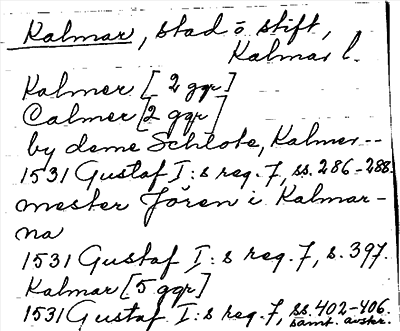 Kalmar, stad o stift,
Kalmar l.
Kalmer [2 ggr]
Calmer [2 ggr]
by deme Schlote, Kalmer--
1531 Gustaf I:s reg. 7, ss. 286-288.
mester Jören i Kalmar-
na
1531 Gustaf I:s reg. 7, s. 397.
Kalmar [5 ggr]
1531 Gustaf I:s reg. 7, ss. 402-406.
samt. avskr.